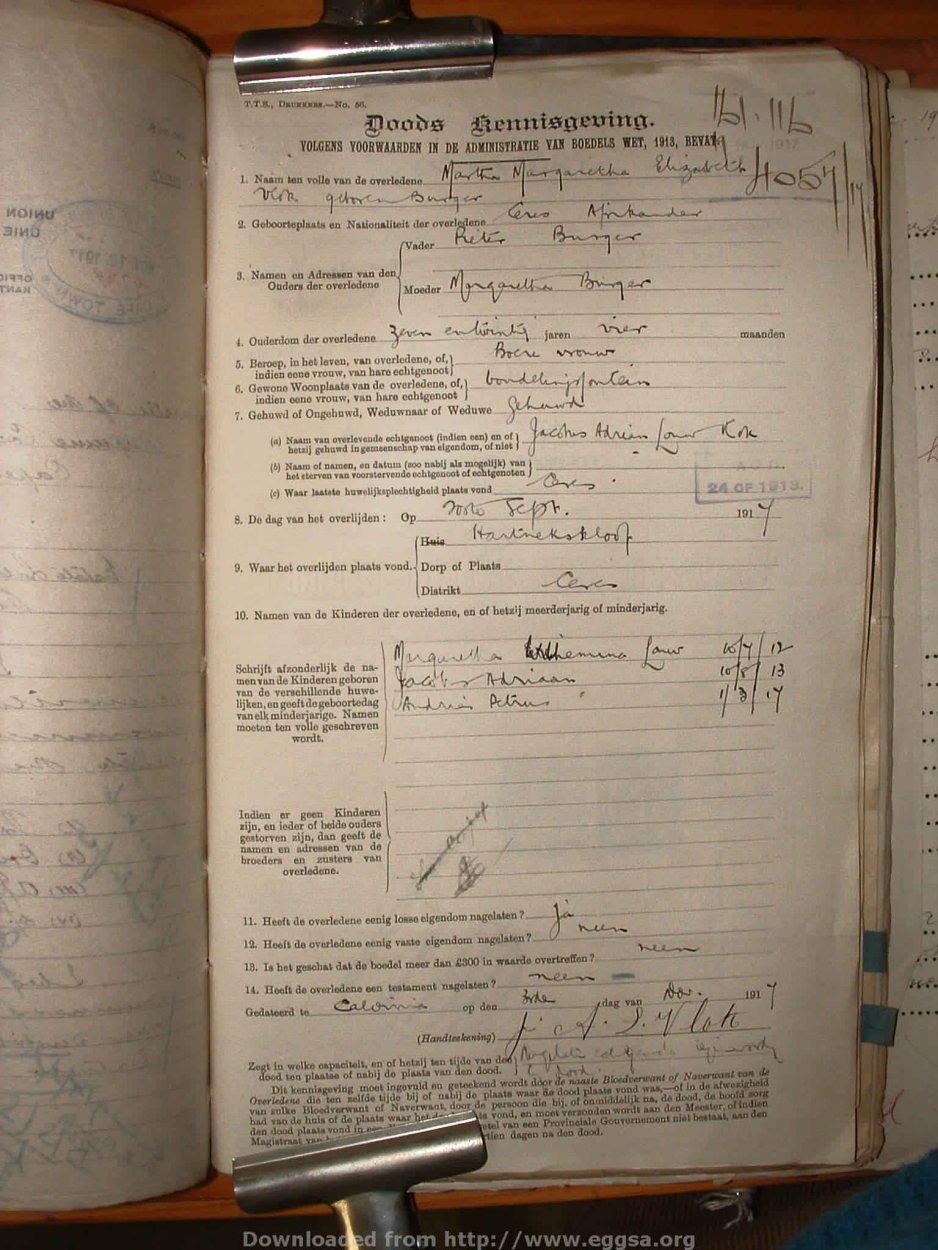 T.T.S., DRUKKERS.—No. 56.
Doods Kennisgeving.
VOLGENS VOORWAARDEN IN DE ADMINISTRATIE VAN BOEDELS WET, 1913, BEVAT.
1. Naam ten volle van de overledene Martha Margaretha Elizabeth
Vlok geboren Burger
2. Geboorteplaats en Nationaliteit der overledene Ceres Afrikander
3. Namen en Adressen van den Ouders der overledene
Vader Pieter Burger
Moeder Margaretha Burger
4. Ouderdom der overledene Zeven en twintig jaren vier maanden
5. Beroep, in het leven, van overledene, of, indien eene vrouw, van hare echtgenoot Boere vrouw
6. Gewone Woonplaats van de overledene, of, indien eene vrouw, van hare echtgenoot
7. Gehuwd of Ongehuwd, Weduwnaar of Weduwe Gehuwd
(a) Naam van overlevende echtgenoot (indien een) en of hetzij gehuwd in gemeenschap van eigendom, of niet Jacobus Adrian Louw
(b) Naam of namen, en datum (zoo nabij als mogelijk) van het sterven van voorstervende echtgenoot of echtgenoten
(c) Waar laatste huwelijksplechtigheid plaats vond Ceres
24 OF 1913.
8. De dag van het overlijden: Op Sept. 1917
9. Waar het overlijden plaats vond.
Huis Hartnekskloof
Dorp of Plaats
Distrikt Ceres
10. Namen van de Kinderen der overledene, en of hetzij meerderjarig of minderjarig.
Schrijft afzonderlijk de namen van de Kinderen geboren van de verschillende huwelijken, en geeft de geboortedag van elk minderjarige. Namen moeten ten volle geschreven wordt.
Margaretha Louw 10/7/12
Jacobus Adriaan 10/8/13
Andries Petrus 1/3/17
Indien er geen Kinderen
zijn, en ieder of beide ouders
gestorven zijn, dan geeft de
namen en adressen van de
broeders en zusters van
overledene.
11. Heeft de overledene eenig losse eigendom nagelaten? Ja
12. Heeft de overledene eenig vaste eigendom nagelaten? neen
13. Is het geschat dat de boedel meer dan £300 in waarde overtreffen? neen
14. Heeft de overledene een testament nagelaten? neen
Gedateerd te Calvinia op den 3rde dag van Nov. 1917
(Handteekening) Vlok
Zegt in welke capaciteit, en of hetzij ten tijde van de dood ten plaatse of nabij de plaats van den dood.
Dit kennisgeving moet ingevuld en geteekend wordt door de naaste Bloedverwant of Naverwant van de
Overledene die ten zelfde tijde bij of nabij de plaats waar de dood plaats vond was,—of in de afwezigheid
van zulke Bloedverwant of Naverwant, door de persoon die bij, of onmiddelijk na, de dood, de hoofd zorg
had van de huis of de plaats waar het vond, en moet verzonden wordt aan den Meester, of indien
den dood plaats vond in een van een Provinciale Gouvernement niet bestaat, aan den
Magistraat van dagen na den dood.
Downloaded from http://www.eggsa.org